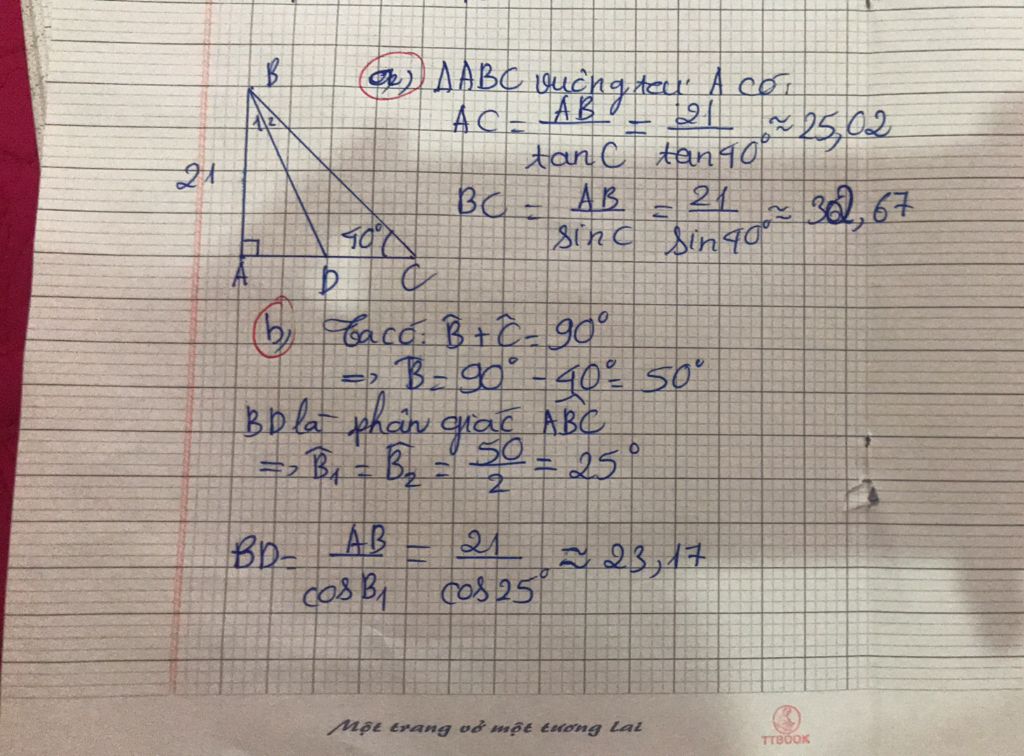 B
1 2
21
40°
A D C
a) ΔABC vuông tại A có:
AC = AB/tanC = 21/tan40° ≈ 25,02
BC = AB/sinC = 21/sin40° ≈ 32,67
b) Ta có: B̂ + Ĉ = 90°
=> B̂ = 90° - 40° = 50°
BD là phân giác ABC
=> B̂₁ = B̂₂ = 50/2 = 25°
BD = AB/cosB₁ = 21/cos25° ≈ 23,17
Một trang vở một tương lai
TTBOOK